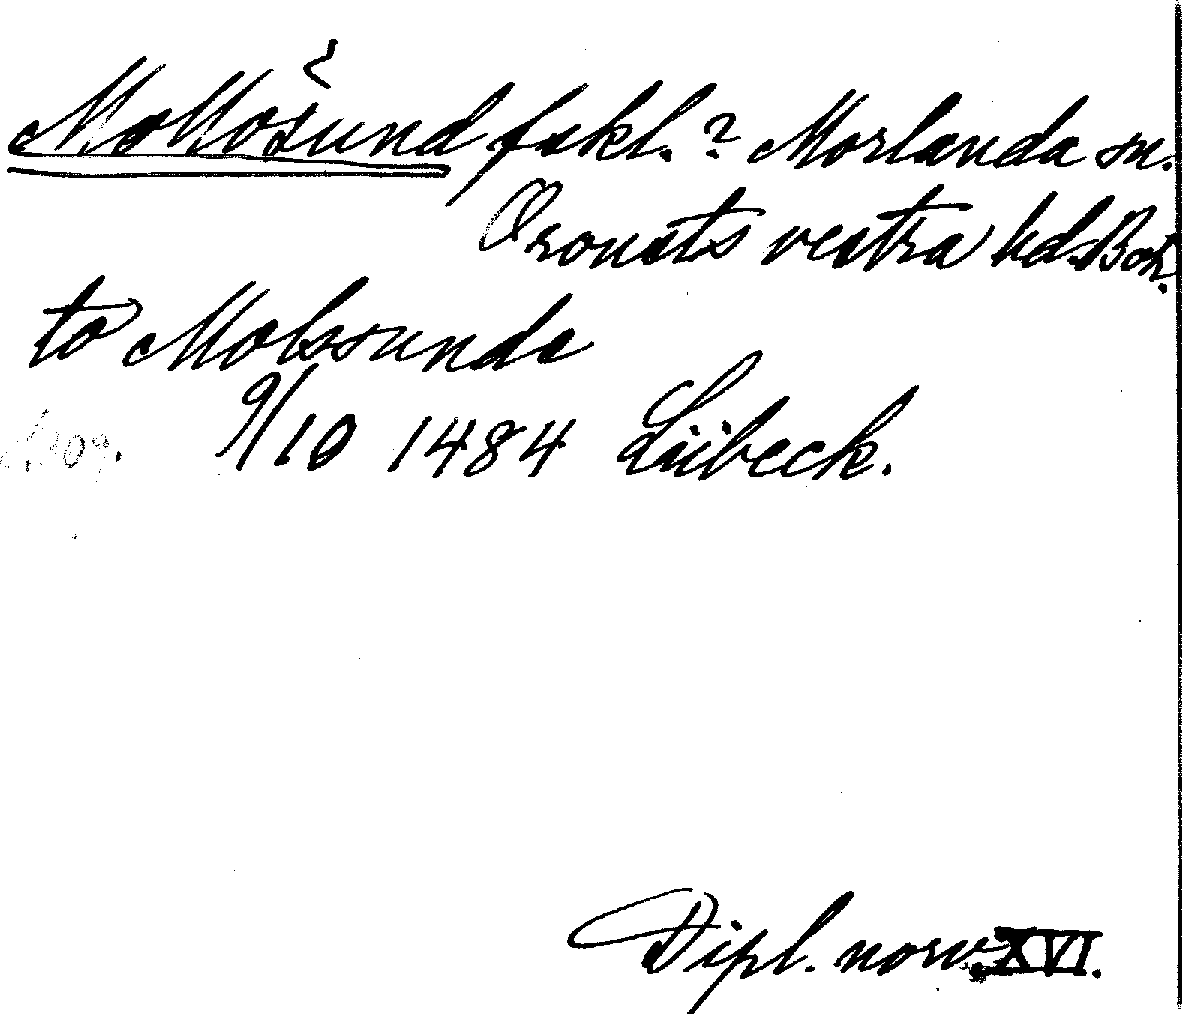 Mollösund fskl.? Morlanda sn.
Orousts vestra hd. Boh.
to Molssunde
9/10 1484 Lübeck.
Dipl. norv. XVI.